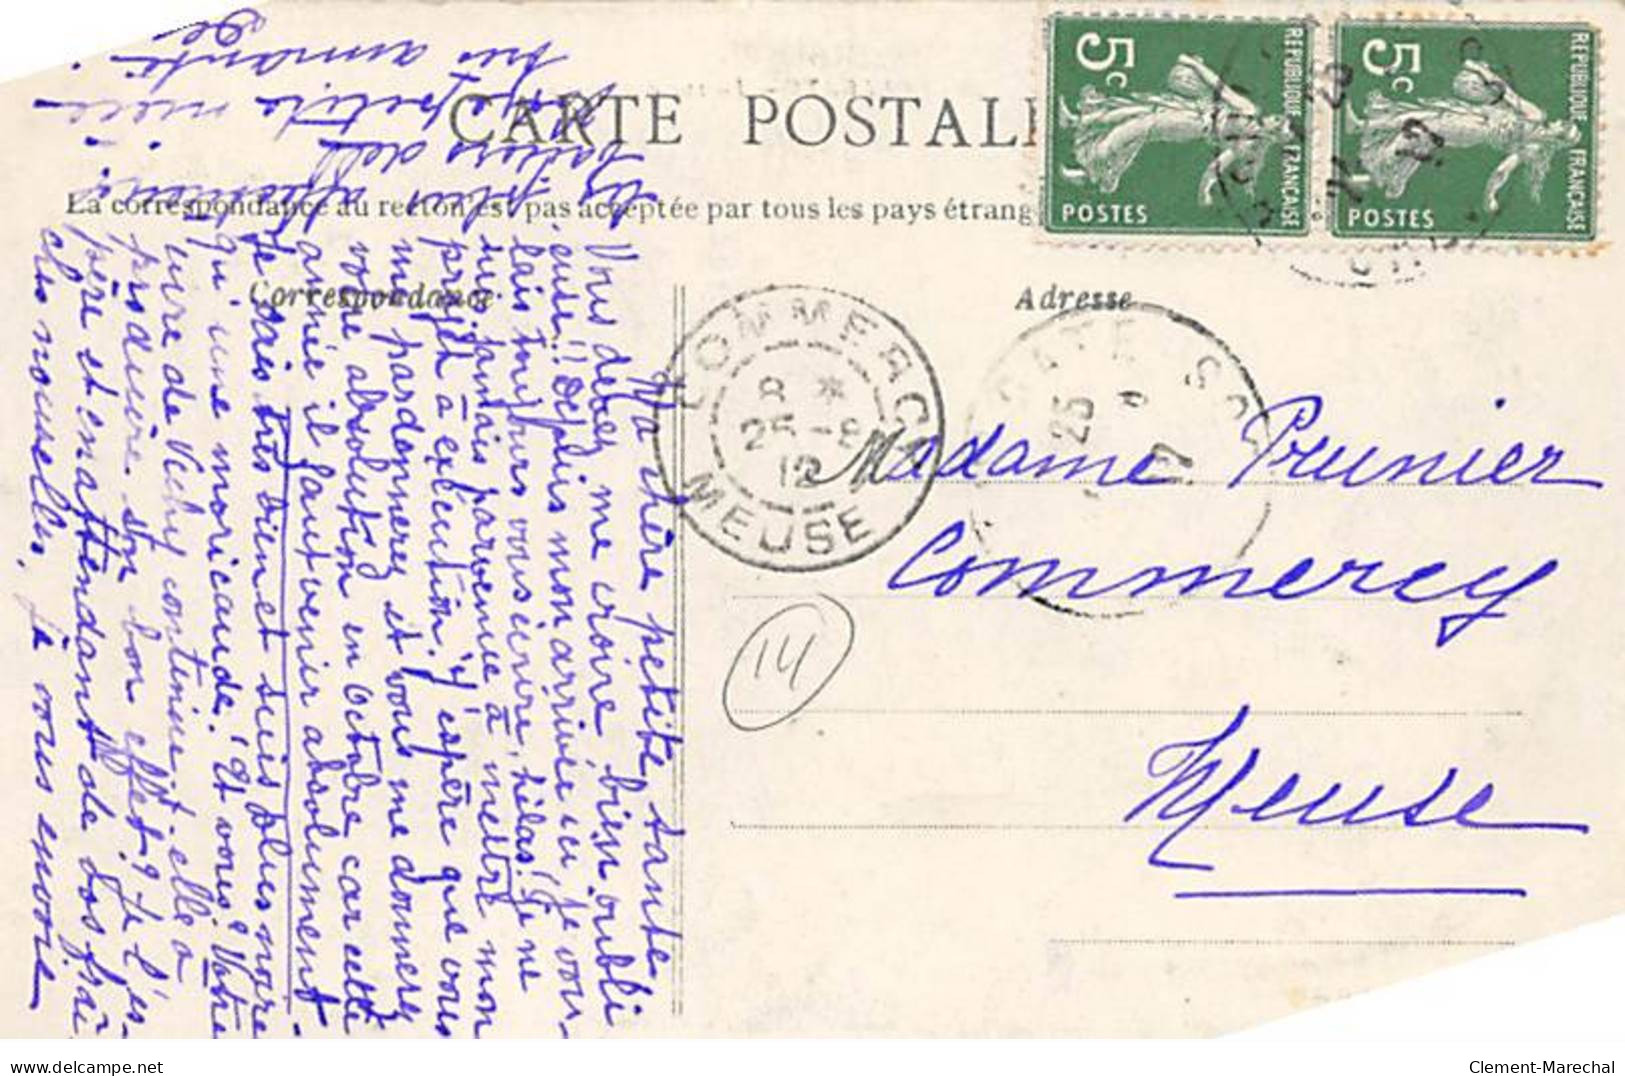 CARTE POSTALE
La correspondance au recto n'est pas acceptée par tous les pays étrang
Correspondance
Adresse
5c
POSTES
REPUBLIQUE FRANÇAISE
5c
POSTES
REPUBLIQUE FRANÇAISE
COMMERCY
8 *
25-8
12
MEUSE
25
Madame Prunier
Commercy
Meuse
14
Ma chère petite tante,
Vous devez me croire bien oubli
euse!! Depuis mon arrivée ici je vou-
lais toujours vous écrire, hélas! Je ne
suis jamais parvenue à mettre mon
projet à exécution. J'espère que vous
me pardonnerez et vous me donnerez
votre absolution en octobre car cette
année il faut venir absolument
Je vais très bien et suis plus noire
qu'une moricaude. Et vous? Votre
cure de Vichy continue-t-elle à
produire son bon effet? Je l'es-
père et en attendant de vos
chères nouvelles, je vous envoie
les
baisers de
petite nièce
très aimante
www.delcampe.net
Clement-Marechal